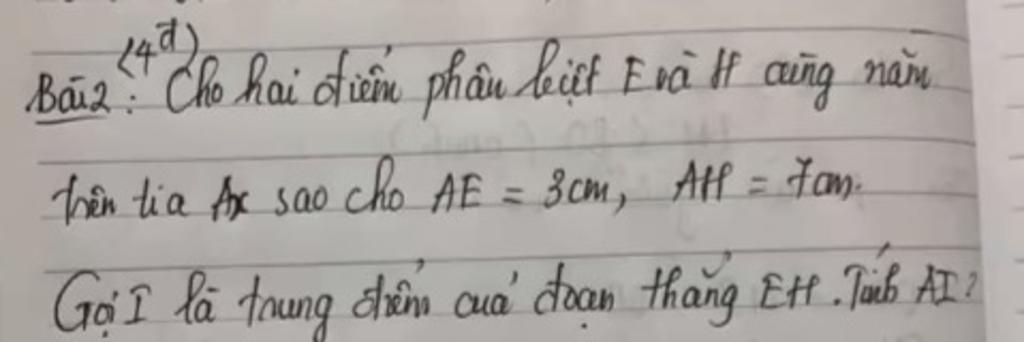 Bài 2: (4đ) Cho hai điểm phân biệt E và H cùng nằm
trên tia Ax sao cho AE = 3cm, AH = 7cm.
Gọi I là trung điểm của đoạn thẳng EH. Tính AI?